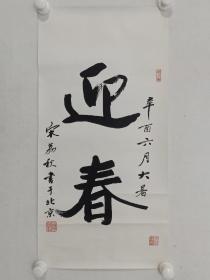 辛酉六月大暑
迎春
宋荔秋书于北京